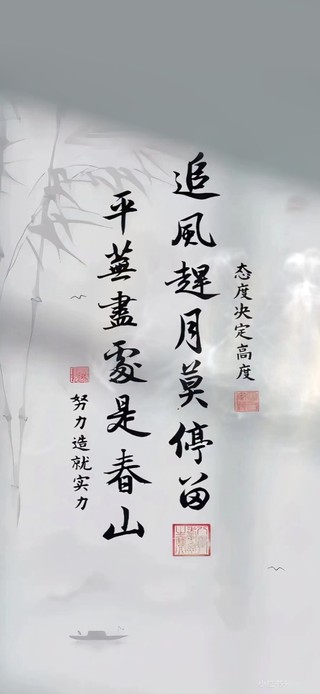 态度决定高度
追風趕月莫停留
平蕪盡處是春山
努力造就实力